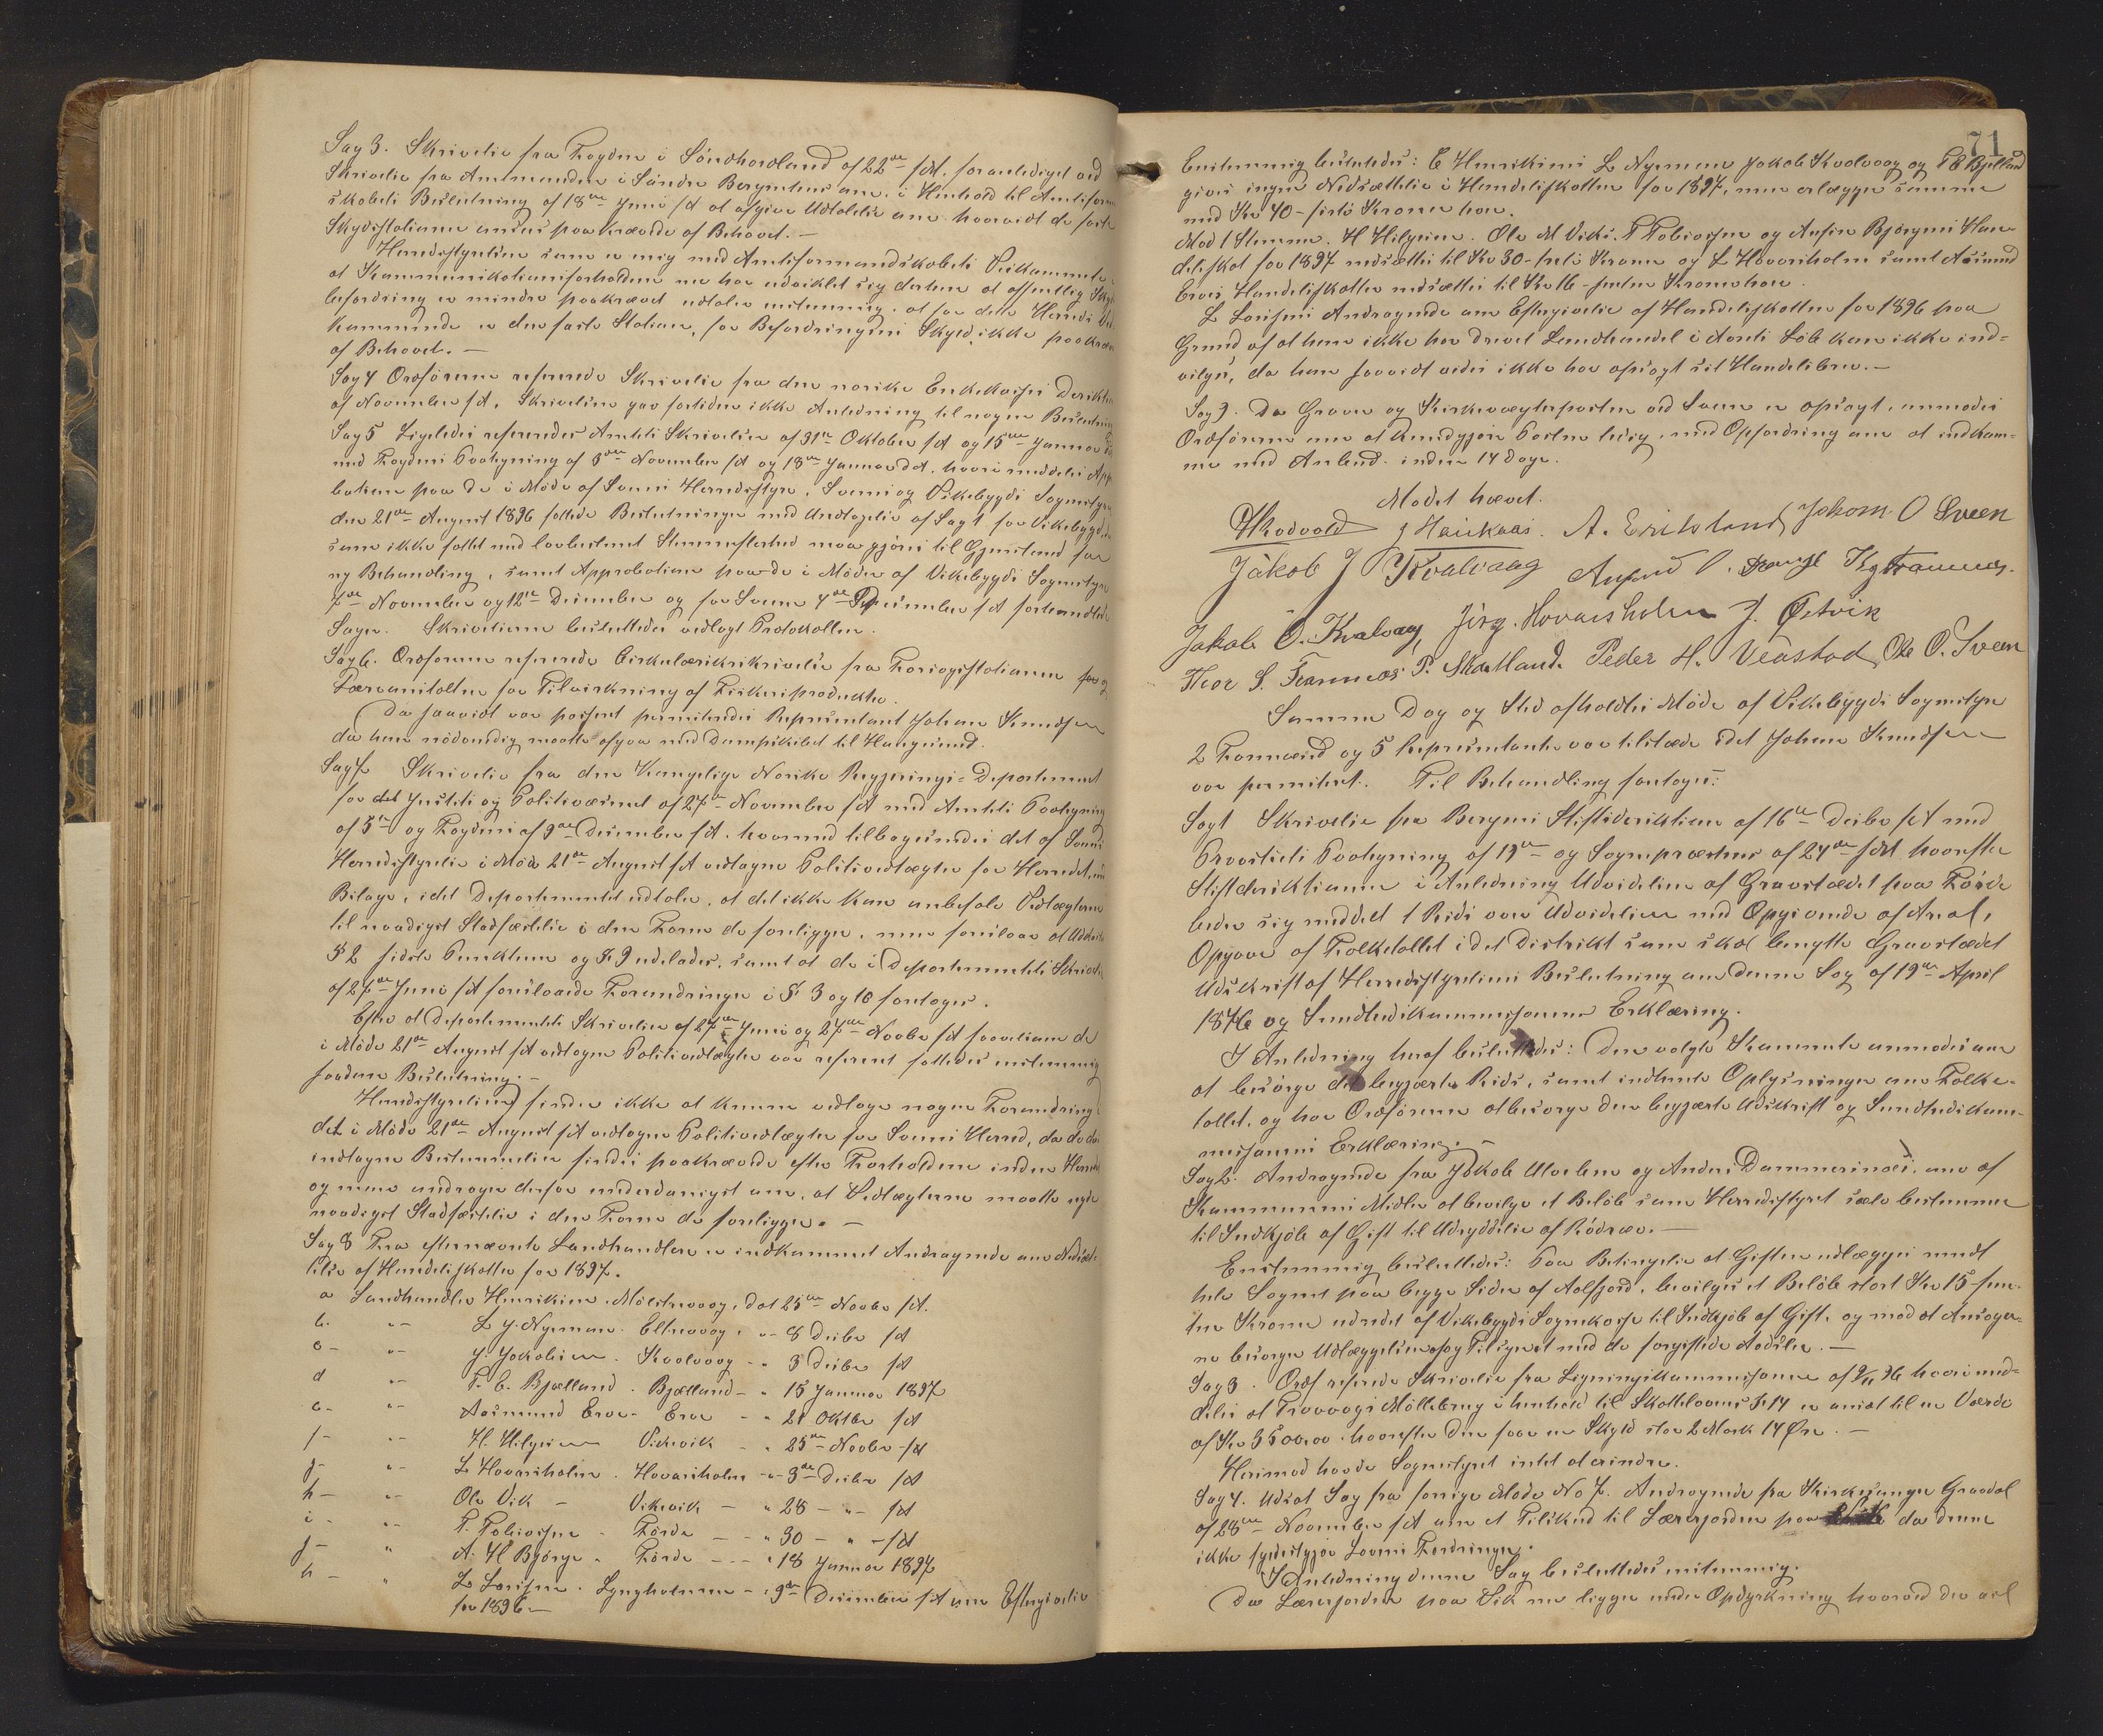 Sag 3. Skrivelse fra Fogden i Söndhordland af 22de f.M. foranlediget ved
Skrivelse fra Amtmanden i Söndre Bergenhus amt, i Henhold til Amtsform
skabets Beslutning af 18de Juni f.A at afgive Udtalelse om hvorvidt de faste
Skydsstationer ansees paakrævede af Behovet. —
Herredsstyrelsen som er enig med Amtsformandskabets Veikommite,
at Kommunikationsforholdene nu har udviklet sig derhen at offentlig Skyds
befordring er mindre paakrævet udtaler enstemmig, at for dette Herreds Ved
kommende er den faste Station, for Befordringens Skyld, ikke paakræv
af Behovet. —
Sag 4 Ordföreren refererede Skrivelse fra den norske Enkekasses Direktion
af November f.A. Skrivelsen gav fortiden ikke Anledning til nogen Beslutning
Sag 5 Ligeledes refereredes Amtets Skrivelser af 31te Oktober f.A og 15de Januar
med Fogdens Paategning af 3die November f.A og 18de Januar d.A. hvori meddeles App
bation paa de i Möde af Sveens Herredsstyre, Sveens og Vikebygds Sognestyre
den 21de August 1896 fattede Beslutninger med Undtagelse af Sag 1 for Vikebygd, da
som ikke fattet med lovbestemt Stemmeflerhed maa gjöres til Gjenstand for
ny Behandling, samt Approbation paa de i Möder af Vikebygds Sognestyre
7de November og 12te December og for Sveen 4de December f.A forhandlede
Sager. Skrivelserne besluttedes vedlagt Protokollen.
Sag 6. Ordföreren refererede Cirkulærskrivelse fra Forsögsstationen for og
Læreanstalten for Tilvirkning af Fiskeriprodukter.
Da saavidt var passeret permiteredes Repræsentant Johan Knudsen
da han nödvendig maatte afgaa med Dampskibet til Haugesund.
Sag 7 Skrivelse fra den Kongelige Norske Regjerings-Departement
for det Justits og Politivæsenet af 27de November f.A med Amtets Paategning
af 5te og Fogdens af 9de December f.A. hvormed tilbagesendes det af Sveens
Herredsstyrelse i Möde 21de August f.A vedtagne Politivedtægter for Herredet, med
Bilage, idet Departementet udtaler, at det ikke kan anbefale Vedtægterne
til naadigst Stadfæstelse i den Form de foreligger, men foreslaar at Udtr
§ 2 sidste Punktum og § 9 udelades, samt at de i Departementets Skrivelse
af 27de Juni f.A foreslaaede Forandringer i § 3 og 10 foretages.
Efter at Departementets Skrivelser af 27de Juni og 27de Novbr f.A saavelsom de
i Möde 21de August f.A vedtagne Politivedtægter var refereret fattedes enstemmig
saadan Beslutning: —
Herredsstyrelsen finder ikke at kunne vedtage nogen Forandring
det i Möde 21de August f.A vedtagne Politivedtægter for Sveens Herred, da de der
indtagne Bestemmelser findes paakrævede efter Forholdene inden Herredet
og man andrager derfor underdanigst om, at Vedtægterne maatte nyde
naadigst Stadfæstelse i den Form de foreligger. —
Sag 8 Fra efternævnte Landhandlere er indkommet Andragende om Nedsæt
telse af Handelsskatter for 1897.
a Landhandler Henriksen. Mölstrevaag, dat 25de Novbr f.A.
b. " L J. Nyman. Eltrevaag, " 8 Decbr f.A
c - " J. Jakobsen. Kvalvaag - " 3 Decbr f.A
d " T. E. Bjælland. Bjælland - " 15 Januar 1897
e - " Aasmund Erve - Erve - " 21 Oktbr f.A
f - " H. Hilgesen Vikevik - " 25de Novbr f.A
g - " L Hovaisholm. Hovaisholm - " 3de Decbr f.A
h - " Ole Vik - Vikevik - " 28 - " - f.A
i - " T. Tobiassen - Förde - - " 30 - " - f.A
j - " A. H Bjørge. Förde - - - " 18 Januar 1897
k - " L Larssen. Lyngholmen - " 9de December f.A om Eftergivelse
for 1896 —
71
Enstemmig besluttedes: E Henriksen L Nyman Jakob Kvalvaag og T E Bjelland
gives ingen Nedsættelse i Handelsskatten for 1897, men erlægger samme
med Kr 40 - firti Kroner hver.
Mod 1 Stemme. H Hilgesen. Ole M Viks. T Tobiassen og Anfin Björges Han-
delsskat for 1897 nedsættes til Kr 30 - treti Kroner og L Hovaisholm samt Aasmund
Erves Handelsskatter nedsættes til Kr 16 - sexten Kroner hver.
L Larsens Andragende om Eftergivelse af Handelsskatten for 1896 paa
Grund af at han ikke har drevet Landhandel i Aarets Löb kan ikke ind-
vilges, da han saavidt vides ikke har opsagt sit Handelsbrev. —
Sag 9. Da Graver og Kirkevægterposten ved Sveen er opsagt, anmodes
Ordföreren om at kundgjöre Posten ledig, med Opfordring om at indkom-
me med Anbud inden 14 Dage.
Mödet hævet.
HRodvold J Haukaas. A. Erikstand Johan O Sveen
Jakob J Kvalvaag Anfind O. Hauge Kg Framnes.
Jakob O. Kvalvaag, Jörg. Hovaisholm J. Østvik
Thor S. Framnæs P. Mortland. Peder H. Veastad Ole O. Sveen
Samme Dag og Sted afholdtes Möde af Vikebygds Sognestyre
2 Formænd og 5 Repræsentanter var tilstæde idet Johan Knudsen
var permiteret. Til Behandling foretoges:
Sag 1 Skrivelse fra Bergens Stiftsdirektion af 16de Decbr f.A med
Provstiets Paategning af 19de og Sognepræstens af 24de f.M hvorefter
Stiftsdirektionen i Anledning Udvidelsen af Gravstædet paa Förde
beder sig meddelt 1 Rids over Udvidelsen med Opgivende af Areal,
Opgave af Folketallet i det Distrikt som skal benytte Gravstædet
Udskrift af Herredsstyrelsens Beslutning om denne Sag af 19de April
1876 og Sundhedskommissionens Erklæring.
I Anledning heraf besluttedes: Den valgte Kommite anmodes om
at besörge det begjærte Rids, samt indhente Oplysninger om Folke-
tallet, og har Ordföreren at besörge den begjærte Udskrift og Sundhedskom-
missionens Erklæring. —
Sag 2. Andragende fra Jakob Alvebne og Anders Dammersnæs, om af
Kommunens Midler at bevilge et Belöb som Herredsstyret selv bestemmer
til Indkjöb af Gift til Udryddelse af Rödræv. —
Enstemmig besluttedes: Paa Betingelse at Giften udlægges rundt
hele Sognet paa begge Sider af Aalfjord, bevilges et Belöb stort Kr 15 - fem-
ten Kroner udredet af Vikebygds Sognekasse til Indkjöb af Gift, og mod at Ansöger-
ne besörger Udlæggelsen og Tilsynet med de forgiftede Aadsler. —
Sag 3. Ordf refererede Skrivelse fra Ligningskommissionen af 9/11 96 hvori med-
deles at Trovaags Möllebrug i henhold til Skattelovens § 14 er ansat til en Værdi
af Kr 3500.00 hvorefter den faar en Skyld stor 2 Mark 14 Øre. —
Herimod havde Sognestyret intet at erindre.
Sag 4. Udsat Sag fra forrige Möde No 7. Andragende fra Kirkesanger Graadal
af 28de November f.A om et Tilskud til Lærerjorden paa Vik da denne
ikke fyldestgjör Lovens Fordringer.
I Anledning denne Sag besluttedes enstemmig.
Da Lærerjorden paa Vik nu ligger under Opdyrkning hvorved der vil